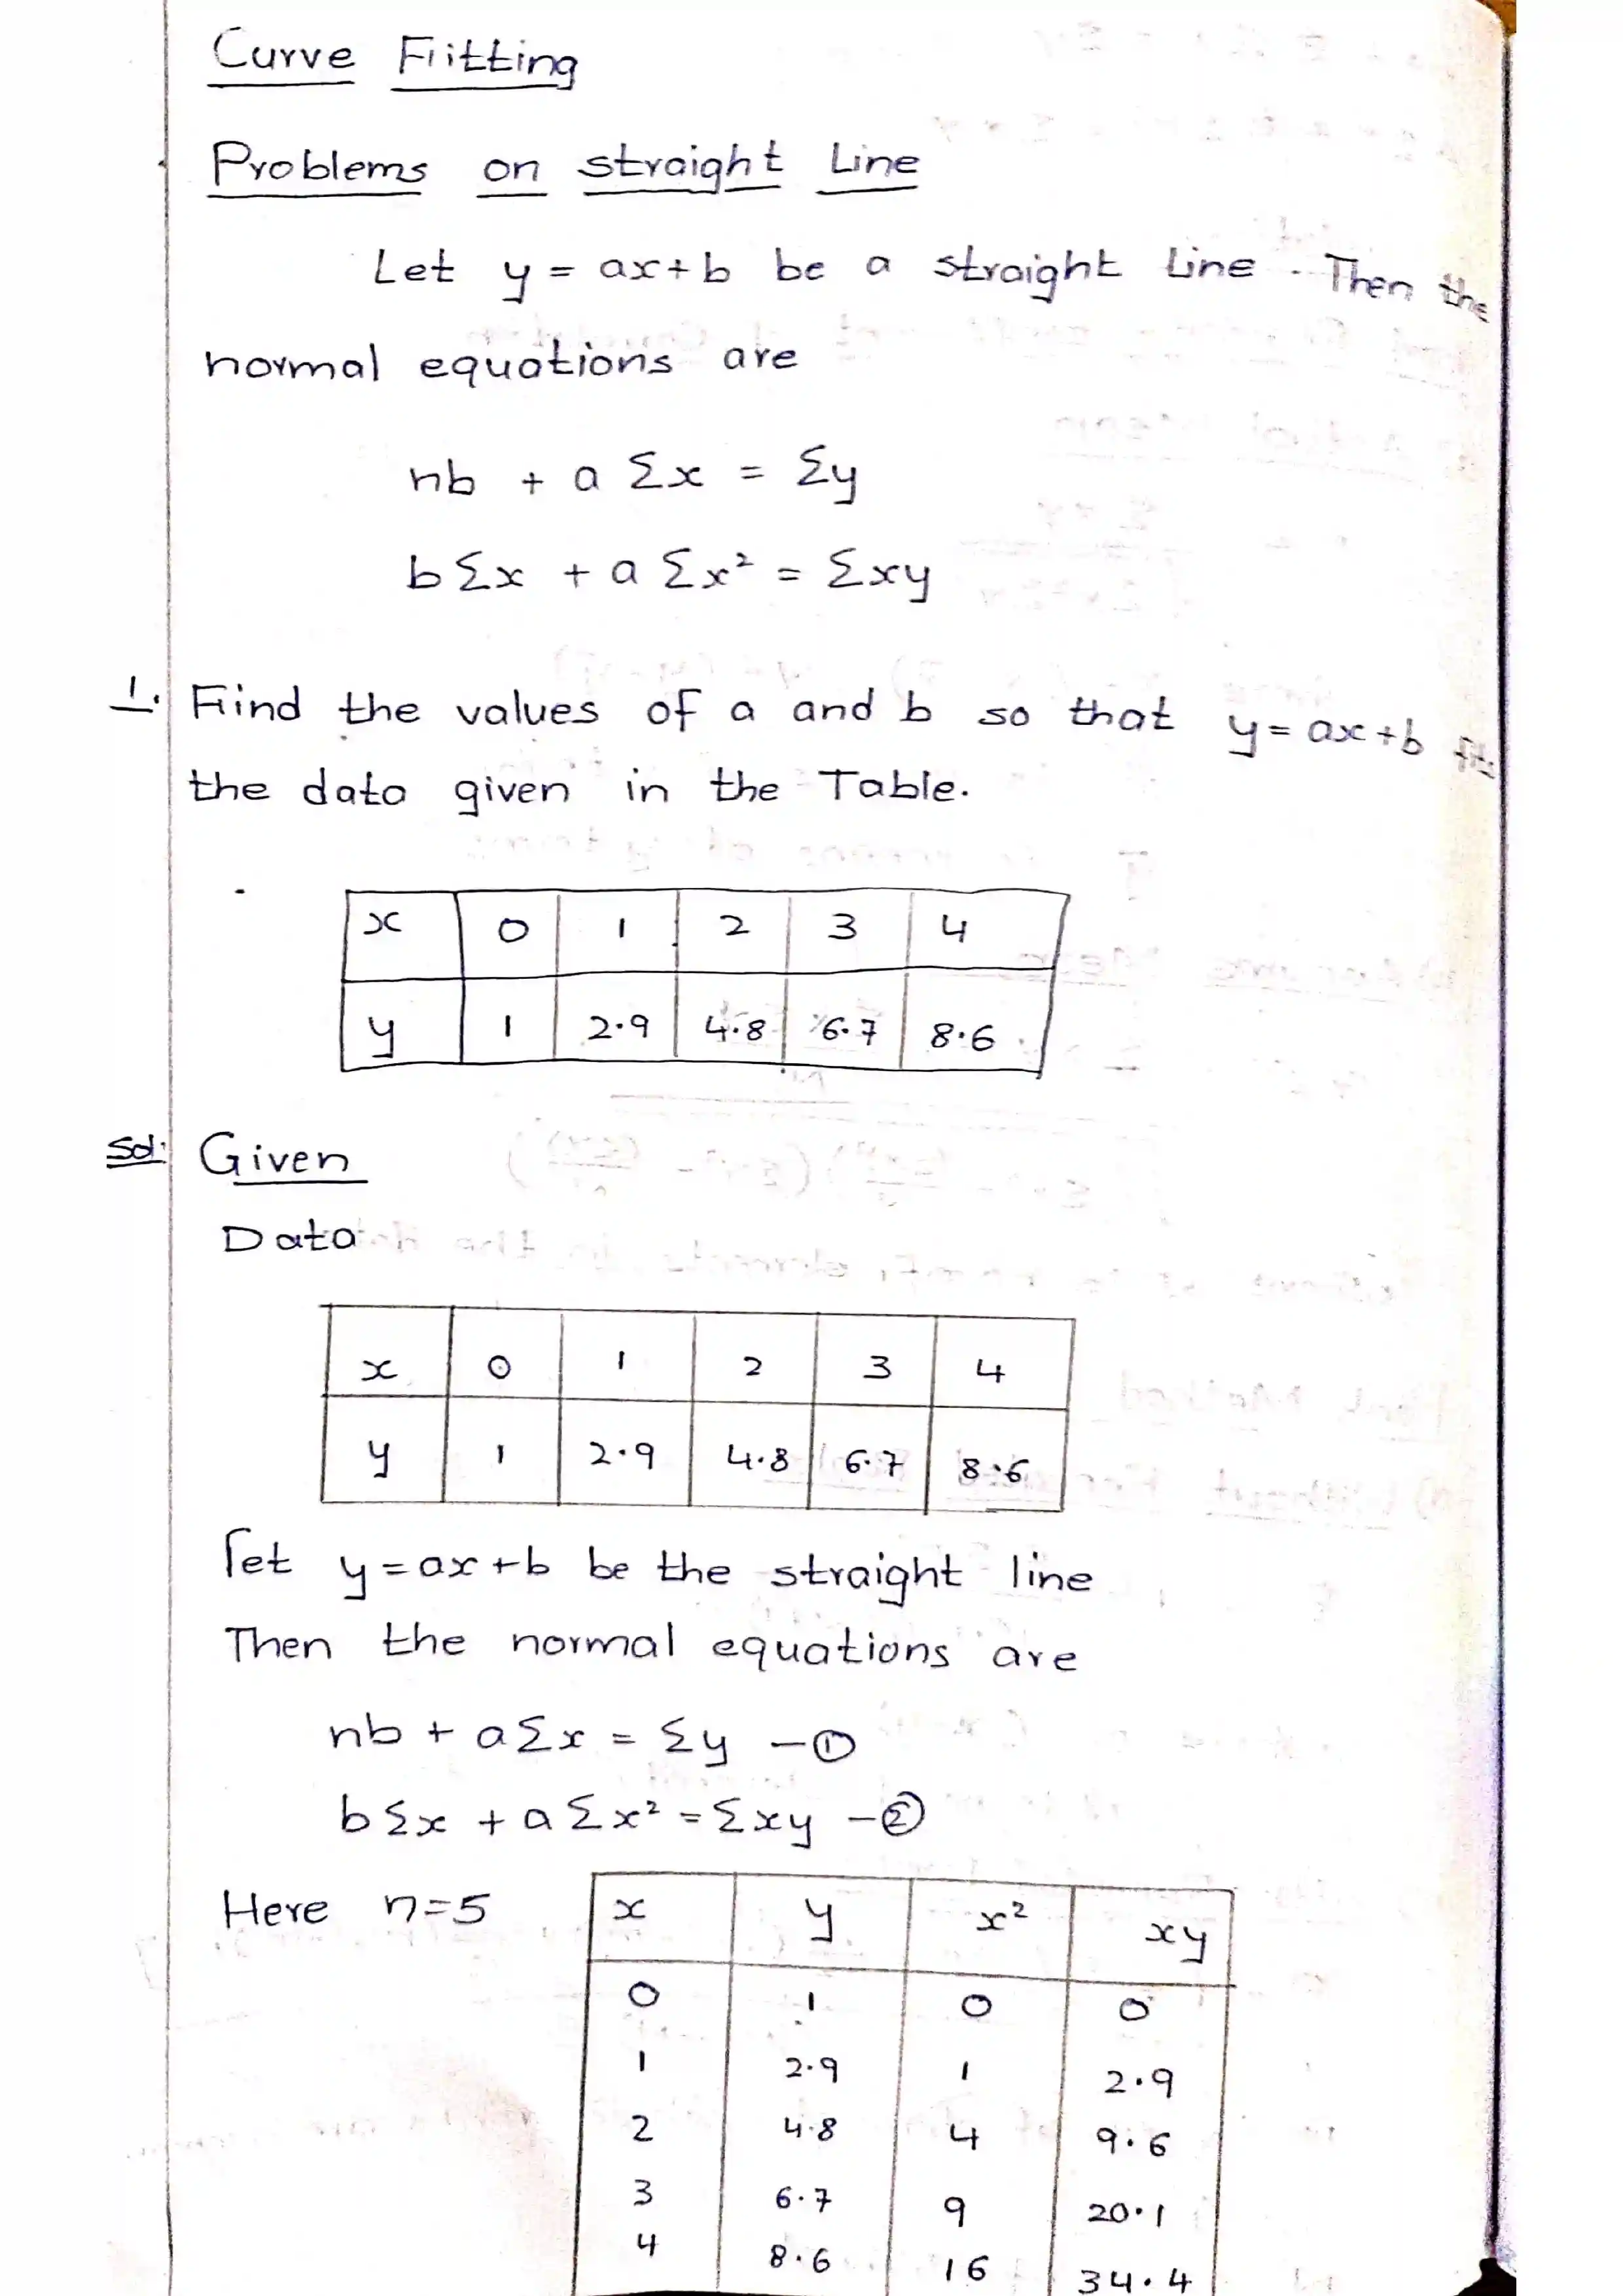 Curve Fiitting
Problems on straight Line
Let y = ax+b be a straight Line. Then the
normal equations are
nb + a Σx = Σy
bΣx + a Σx² = Σxy
1. Find the values of a and b so that y=ax+b
the data given in the Table.
x 0 1 2 3 4
y 1 2.9 4.8 6.7 8.6
Sol: Given
Data
x 0 1 2 3 4
y 1 2.9 4.8 6.7 8.6
Let y=ax+b be the straight line
Then the normal equations are
nb + aΣx = Σy -①
bΣx + aΣx² = Σxy -②
Here n=5
x y x² xy
0 1 0 0
1 2.9 1 2.9
2 4.8 4 9.6
3 6.7 9 20.1
4 8.6 16 34.4